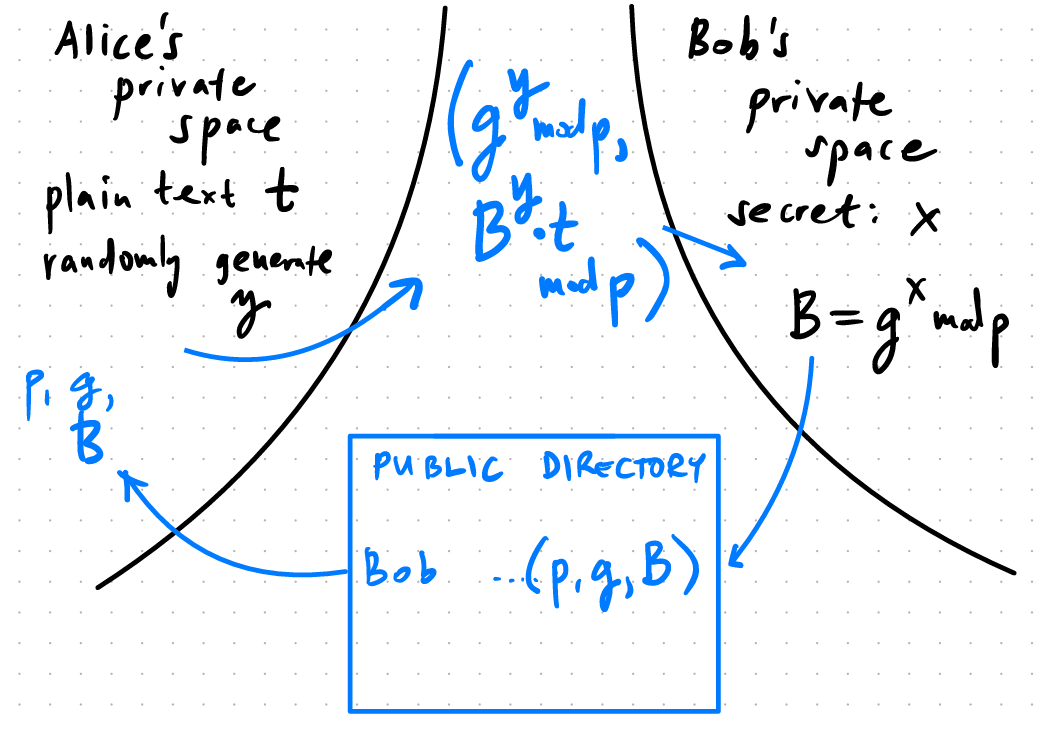 Alice's
private
space
plain text t
randomly generate
y
p, g,
B
(g^y mod p,
B^y · t
mod p)
Bob's
private
space
secret: x
B = g^x mod p
PUBLIC DIRECTORY
Bob ...(p, g, B)